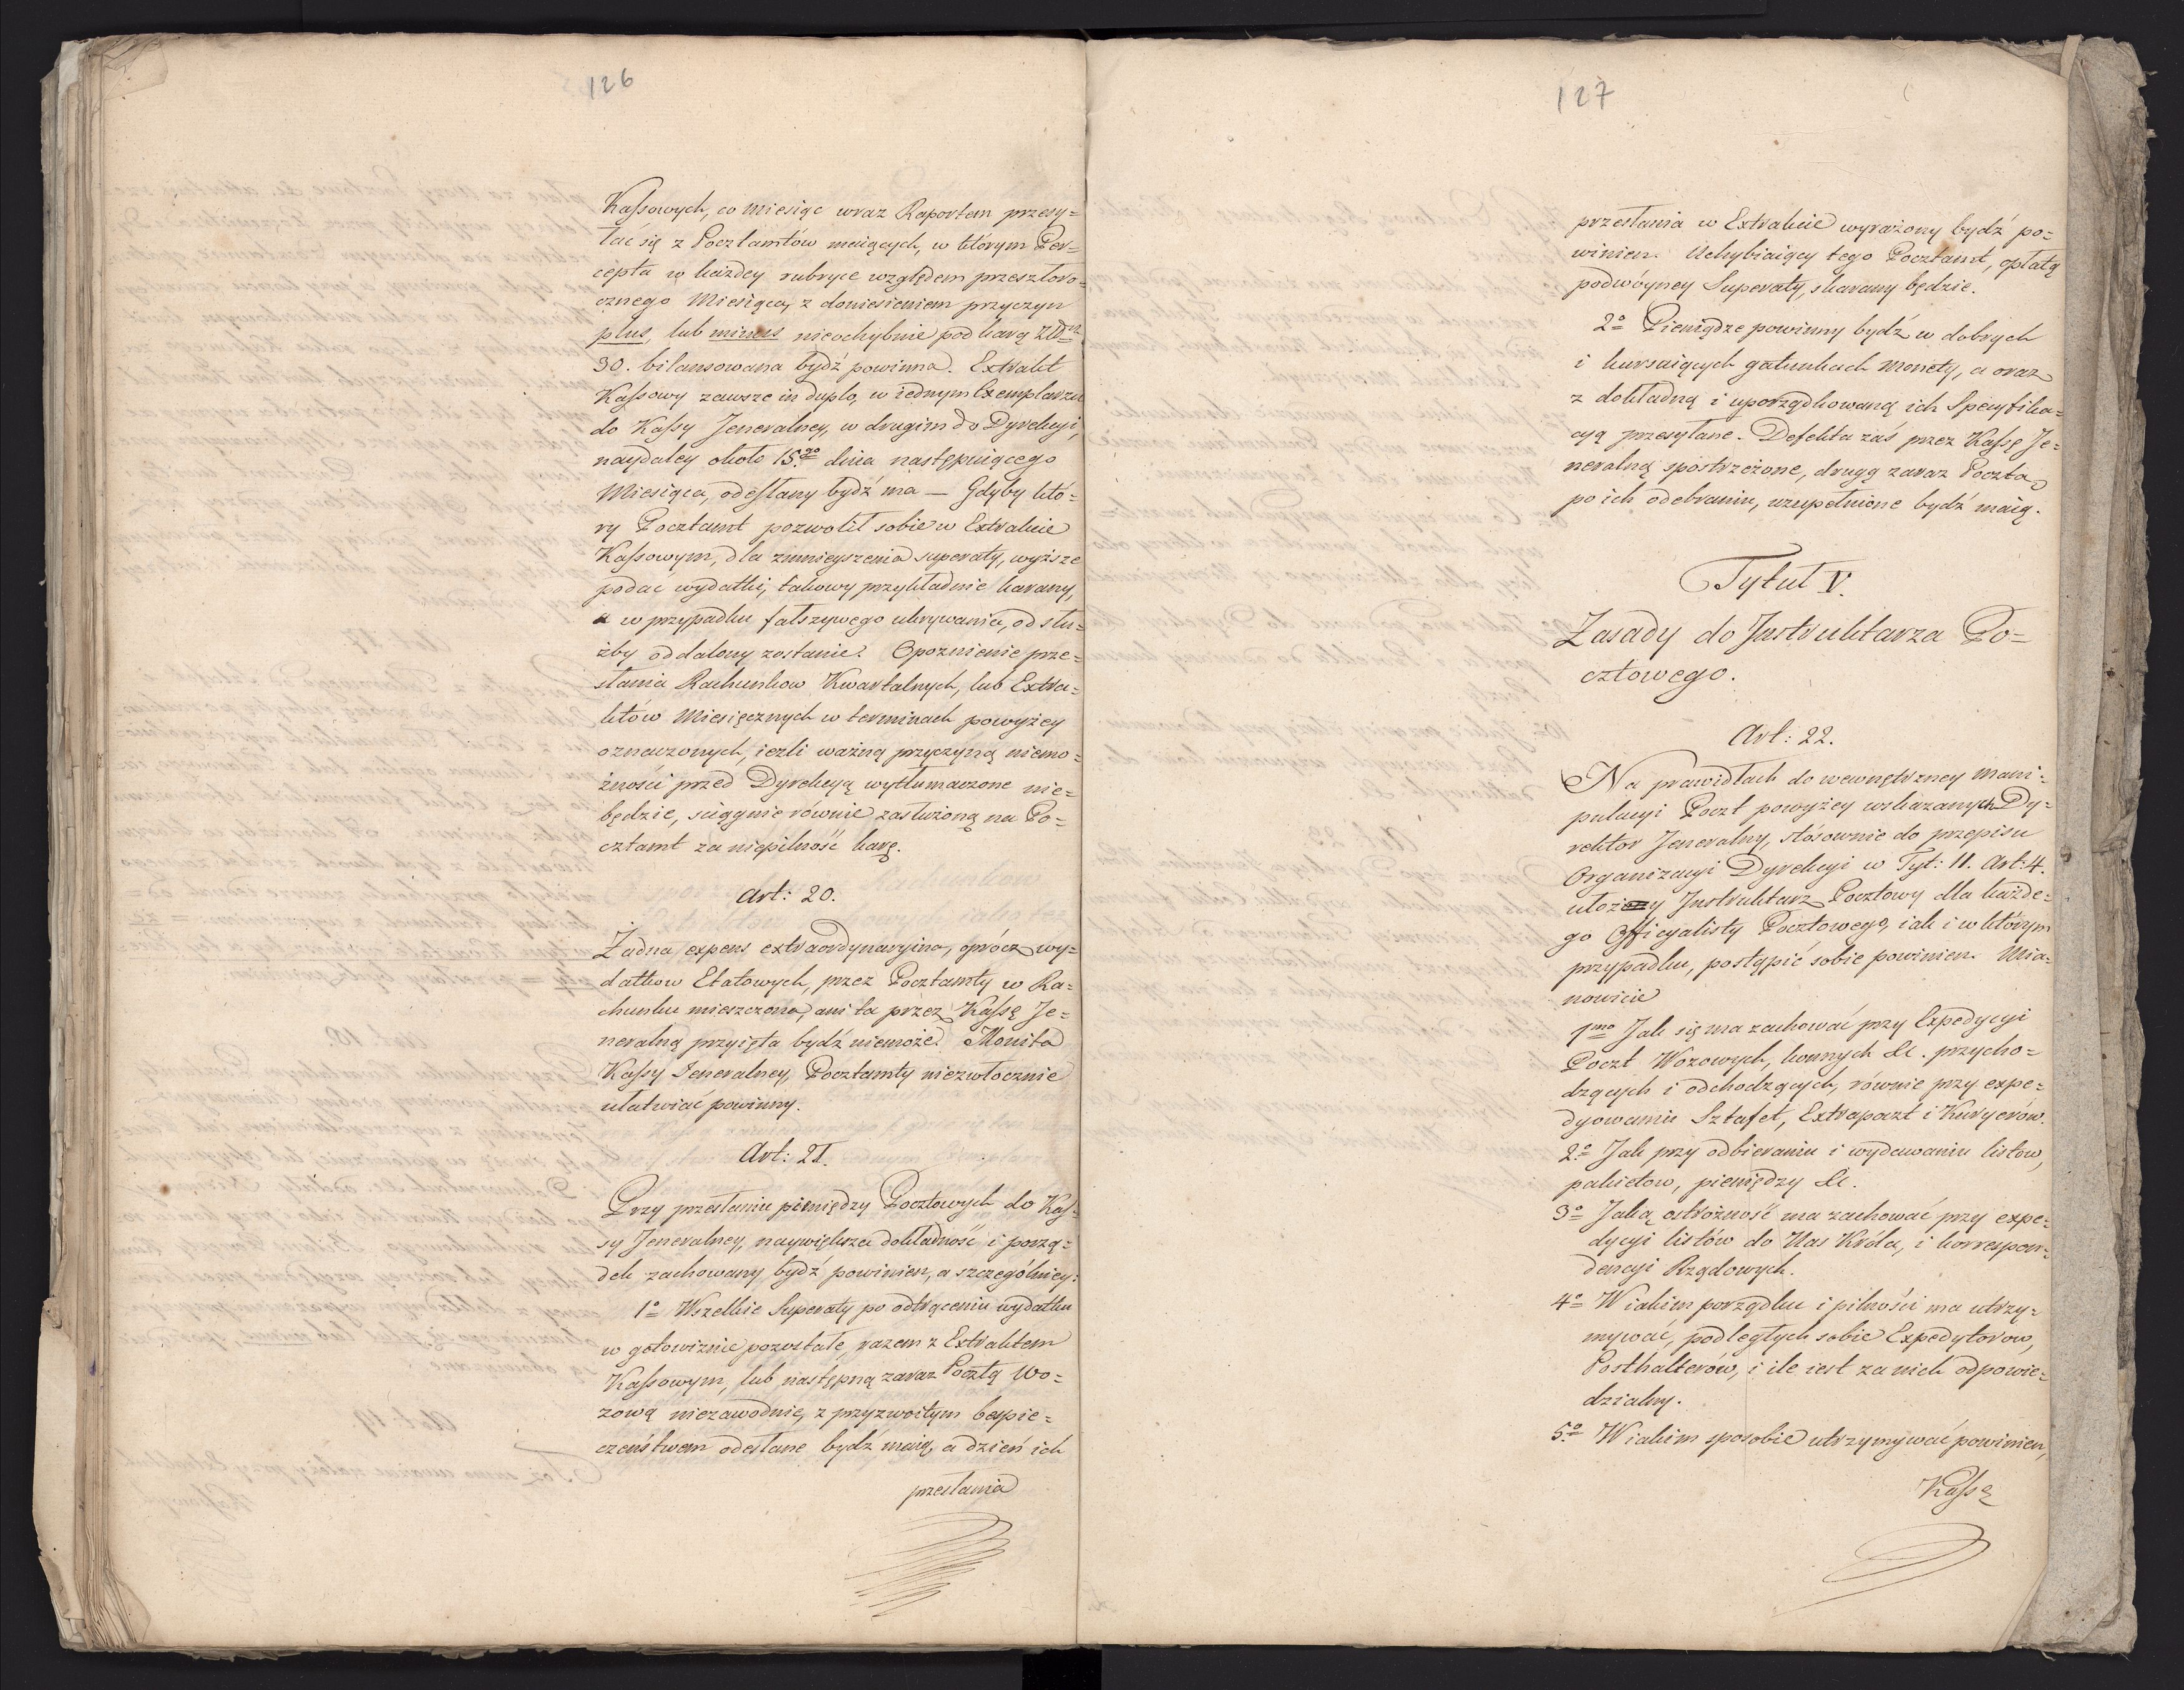 126
Kaſsowych, co miesiąc wraz Raportem przesy=
łać się z Pocztamtów maiących, w którym Per=
cepta w każdey rubryce względem przeszłoro=
cznego Miesiąca, z doniesieniem przyczyn
plus, lub minus nieochybnie pod karą
30. bilansowana bydź powinna. Extrakt
Kaſsowy zawsze in duplo, w iednym Exemplarzu
do Kaſsy Jeneralney, w drugim do Dyrekcyi,
naydaley około 15go dnia następuiącego
Miesiąca, odesłany bydź ma — Gdyby któ=
ry Pocztamt pozwolił sobie w Extrakcie
Kaſsowym, dla zmnieyszenia superaty, wyższe
podać wydatki, takowy przykładnie karany,
a w przypadku fałszywego ukrywania, od słu=
żby oddalony zostanie. Opoznienie prze=
słania Rachunkow Kwartalnych, lub Extra=
któw Miesięcznych w terminach powyżey
oznaczonych, iezli ważną przyczyną niemo=
żności przed Dyrekcyą wytłumaczone nie=
będzie, sciągnie równie zasłużoną na Po=
cztamt za niepilność karę.
Art: 20.
Żadna expens extraordynaryina, oprócz wy=
datkow Etatowych, przez Pocztamty w Ra=
chunku mieszczona, ani ta przez Kaſsę Je=
neralną przyięta bydź niemoże. Monita
Kaſsy Jeneralney, Pocztamty niezwłocznie
ułatwiać powinny.
Art: 21.
Przy przesłaniu pieniędzy Pocztowych do Kaſ=
sy Jeneralney, naywiększa dokładność i porzą=
dek zachowany bydź powinien, a szczególniey:
1o Wszelkie Superaty po odtrąceniu wydatku
w gotowiznie pozostałe, razem z Extraktem
Kaſsowym, lub następną zaraz Pocztą Wo=
zową niezawodnie, z przyzwoitym bespie=
czeństwem odesłane bydź maią, a dzień ich
przesłania
127
przesłania w Extrakcie wyrażony bydź po=
winien. Uchybiaiący tego Pocztamt, opłatą
podwóyney Superaty, skarany będzie.
2o Pieniądze powinny bydź w dobrych
i kursaiących gatunkach Monety, a oraz
z dokładną i uporządkowaną ich Specyfika=
cyą przesyłane. Defekta zaś przez Kaſsę Je=
neralną spostrzeżone, drugą zaraz Pocztą
po ich odebraniu, uzupełnione bydź maią.
Tytuł V.
Zasady do Instruktarza Po=
cztowego.
Art: 22.
Na prawidłach do wewnętrzney Mani=
pulacyi Poczt powyżey wskazanych Dy=
rektor Jeneralny, stósownie do przepisu
Organizacyi Dyrekcyi w Tyt: 11. Art: 4.
ułoży Instruktarz Pocztowy dla każde=
go Officyalisty Pocztowego, iak i w którym
przypadku, postąpić sobie powinien. Mia=
nowicie
1mo Jak się ma zachować przy Expedycyi
Poczt Wozowych, konnych &c. przycho=
dzących i odchodzących, równie przy expe=
dyowaniu Sztafet, Extrapoczt i Kuryerów.
2o Jak przy odbieraniu i wydawaniu listow,
pakietow, pieniędzy &c.
3o Jaką ostrożność ma zachować przy expe=
dycyi listów do Nas Króla, i korrespon=
dencyi Rządowych.
4o W iakim porządku i pilności ma utrzy=
mywać, podległych sobie Expedytorow,
Posthalterów, i ile iest za nich odpowie=
dzialny.
5o W iakim sposobie utrzymywać powinien,
Kaſsę